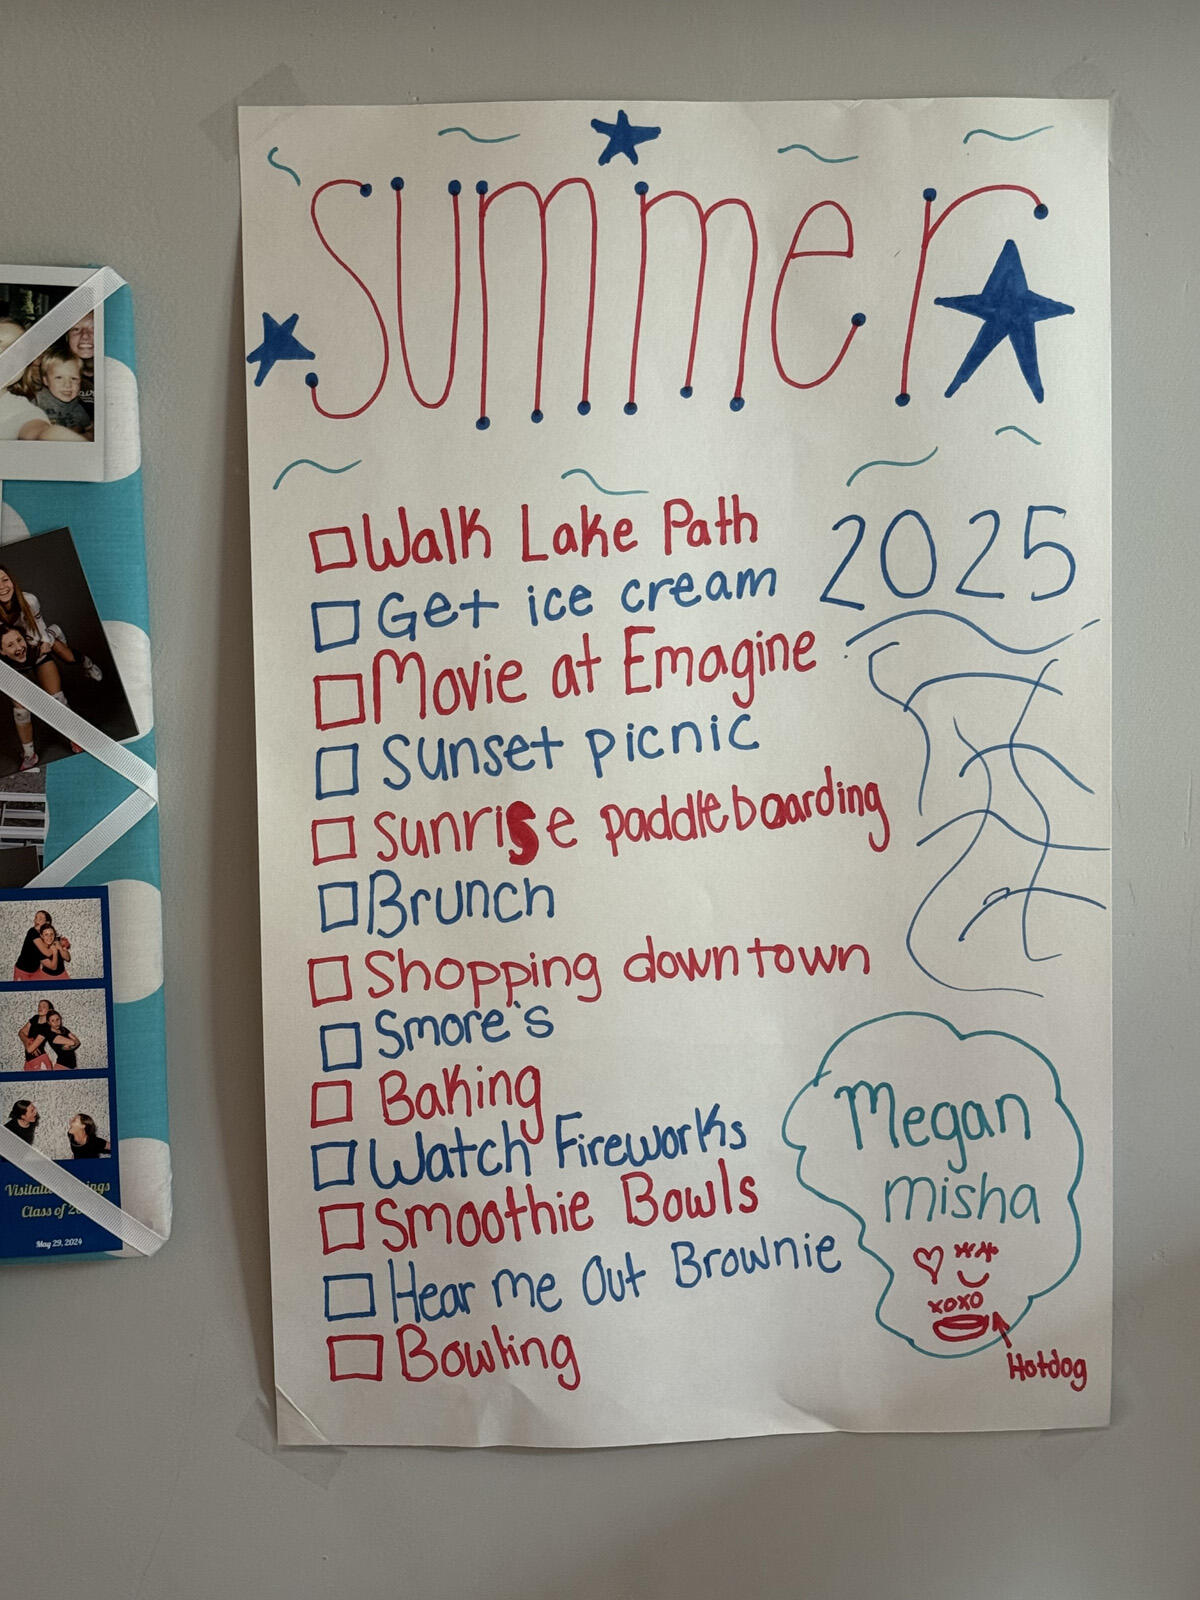 summer
2025
Walk Lake Path
Get ice cream
Movie at Emagine
Sunset picnic
sunrise paddleboarding
Brunch
Shopping downtown
Smore's
Baking
Watch Fireworks
Smoothie Bowls
Hear me Out Brownie
Bowling
Megan
misha
xoxo
Hotdog
Class of
May 29, 2024